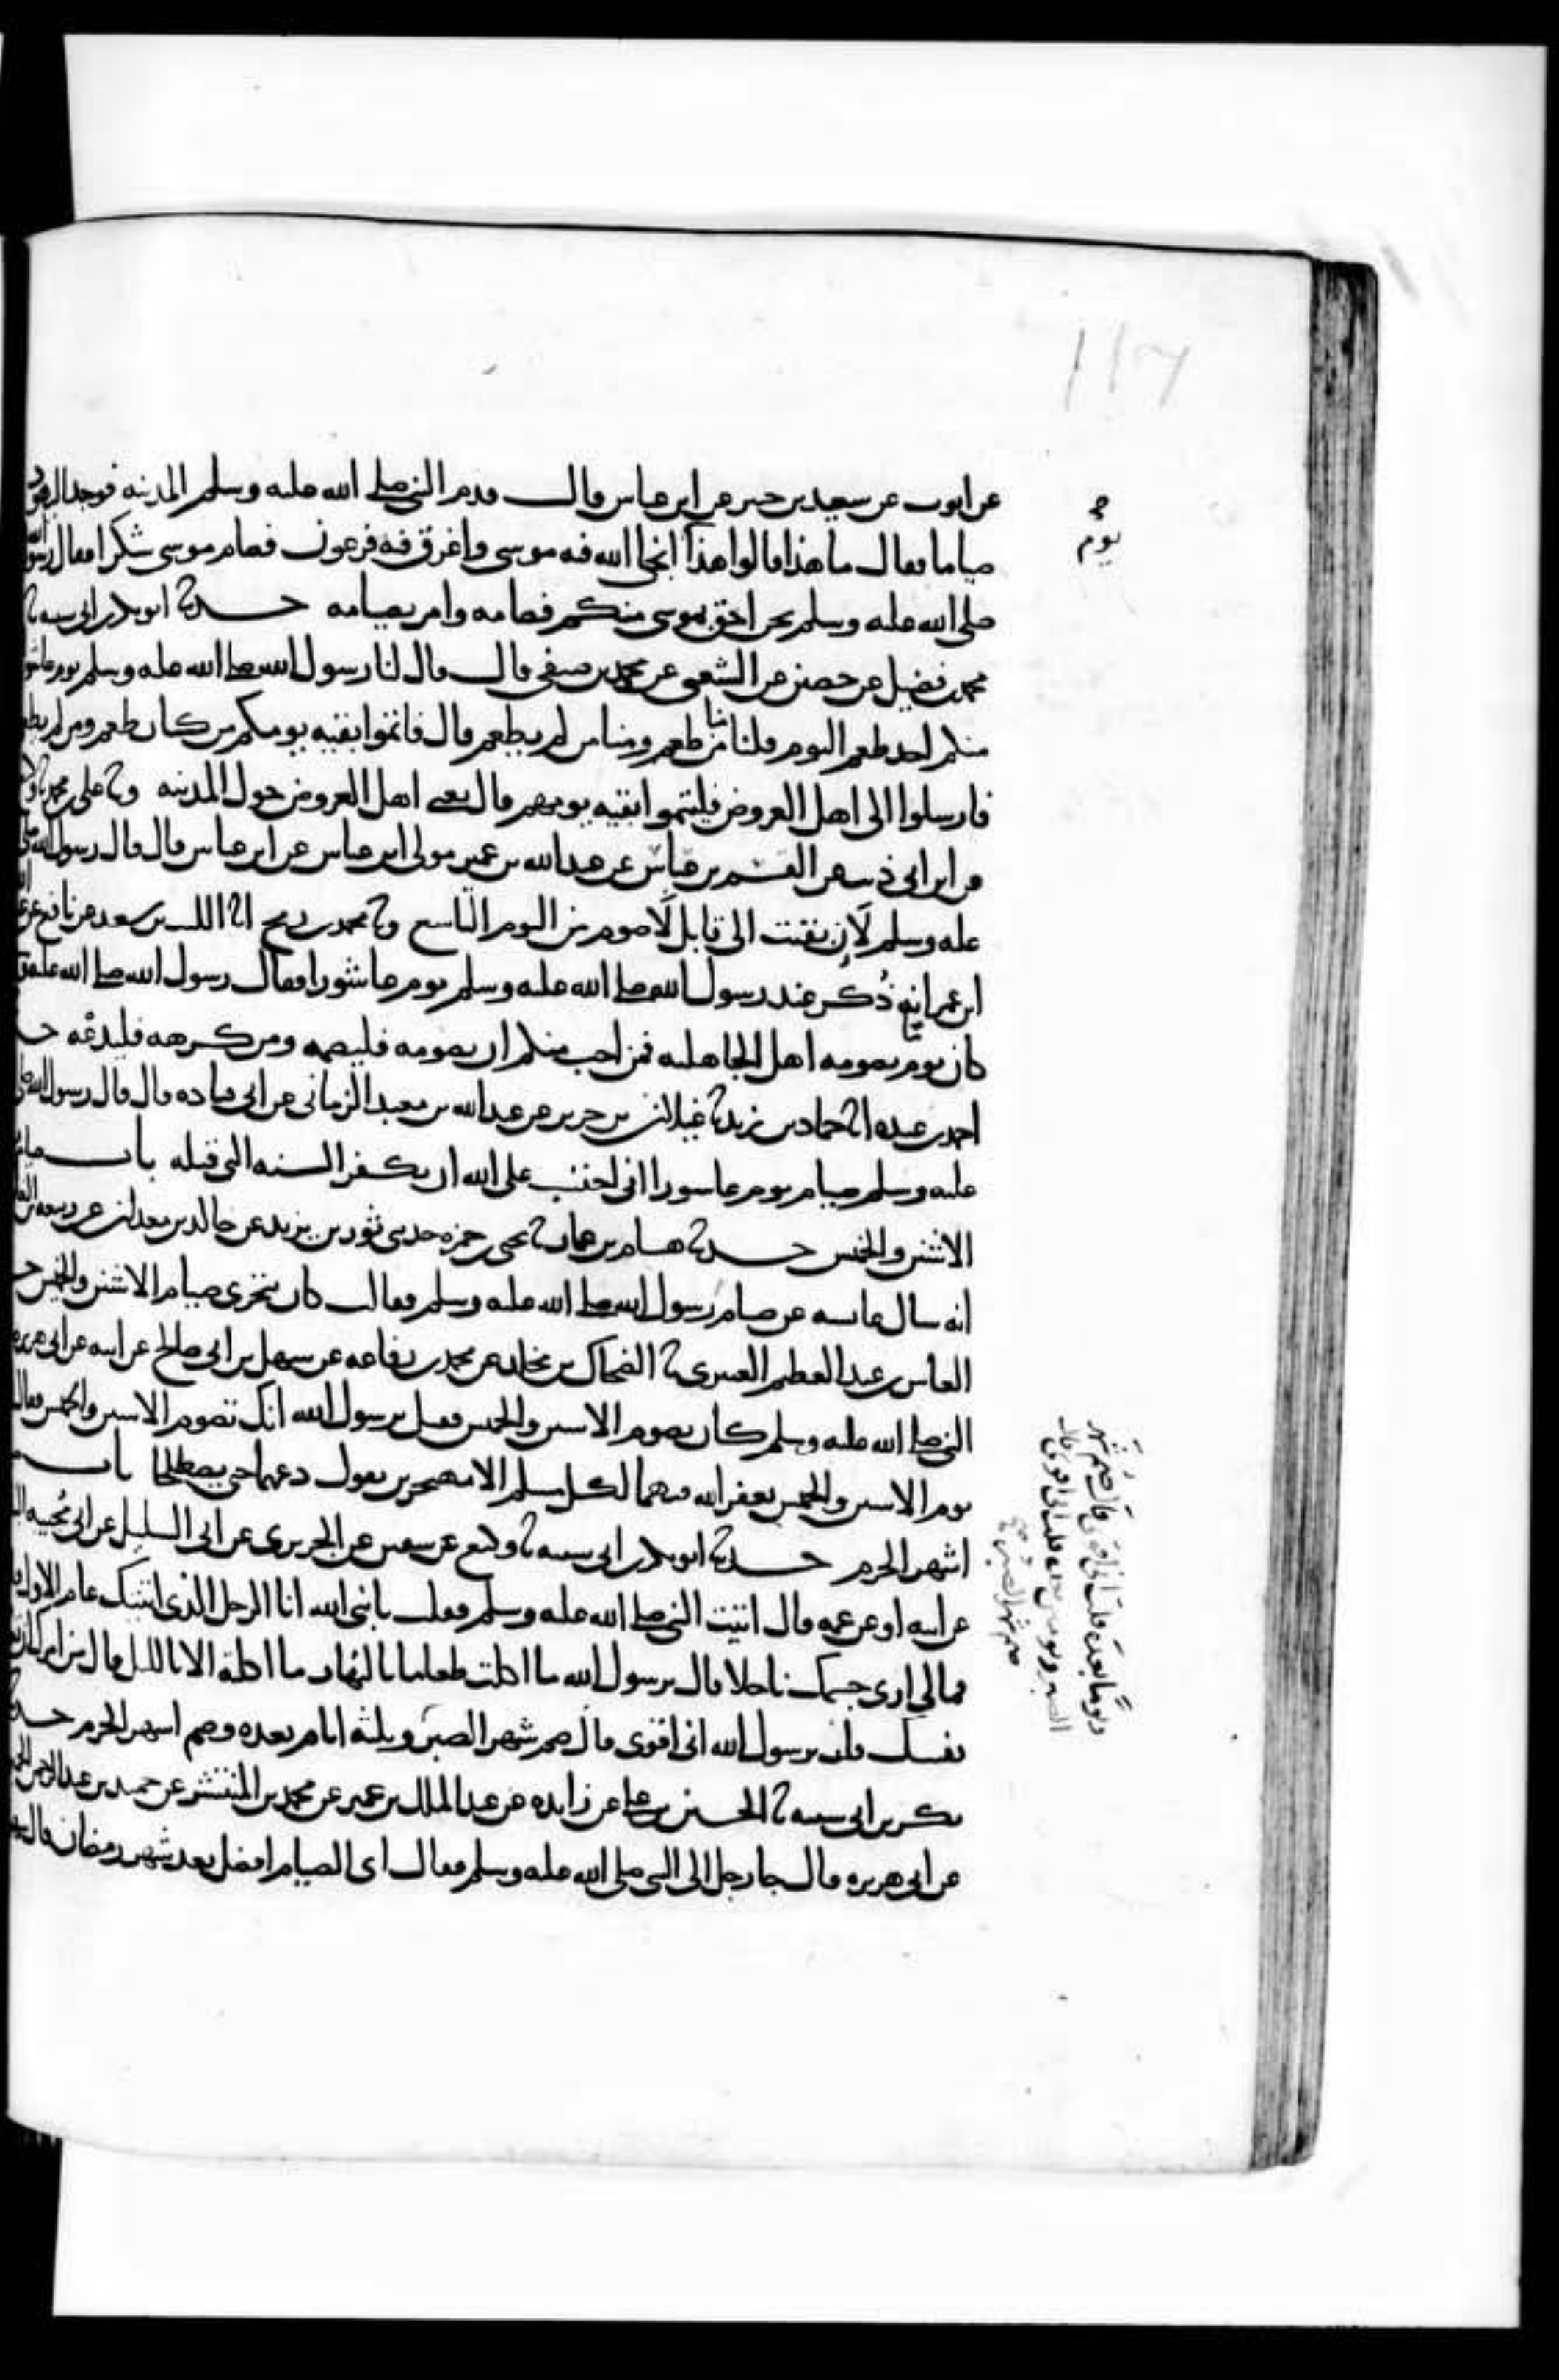 عن ايوب عن سعيد بن جبير عن ابن عباس قال قدم النبي صلى الله عليه وسلم المدينه فوجد اليهود
صياما فقال ما هذا قالوا هذا انجى الله فيه موسى واغرق فيه فرعون فصام موسى شكرا فقال رسول الله
صلى الله عليه وسلم نحن احق بموسى منكم فصامه وامر بصيامه حدثنا ابو بكر بن ابي شيبه ثنا
محمد بن فضيل عن حصين عن الشعبي عن محمد بن صيفي قال قال لنا رسول الله صلى الله عليه وسلم يوم عاشورا
منكم احد طعم اليوم قلنا منا من طعم ومنا من لم يطعم قال فاتموا بقيه يومكم من كان طعم ومن لم يطعم
فارسلوا الى اهل العروض فليتموا بقيه يومهم قال يعني اهل العروض حول المدينه وثنا علي بن محمد ثنا وكيع
عن ابن ابي ذيب عن القسم بن عباس عن عبد الله بن عمير مولى ابن عباس عن ابن عباس قال قال رسول الله صلى الله
عليه وسلم لان بقيت الى قابل لاصومن اليوم التاسع وثنا محمد بن رمح انا الليث بن سعد عن نافع عن
ابن عمر انه ذكر عند رسول الله صلى الله عليه وسلم يوم عاشورا فقال رسول الله صلى الله عليه وسلم
كان يوم يصومه اهل الجاهليه فمن احب منكم ان يصومه فليصمه ومن كرهه فليدعه حدثنا
احمد بن عبده انا حماد بن زيد ثنا غيلان بن جرير عن عبد الله بن معبد الزماني عن ابي قتاده قال قال رسول الله صلى الله
عليه وسلم صيام يوم عاشورا اني احتسب على الله ان يكفر السنه التي قبله باب صيام
الاثنين والخميس حدثنا هشام بن عمار ثنا يحيى بن حمزه حدثني ثور بن يزيد عن خالد بن معدان عن ربيعه بن الغاز
انه سال عائشه عن صيام رسول الله صلى الله عليه وسلم فقالت كان يتحرى صيام الاثنين والخميس حدثنا
العباس بن عبد العظيم العنبري ثنا الضحاك بن مخلد عن محمد بن رفاعه عن سهيل بن ابي صالح عن ابيه عن ابي هريره
النبي صلى الله عليه وسلم كان يصوم الاثنين والخميس فقيل يرسول الله انك تصوم الاثنين والخميس فقال
يوم الاثنين والخميس يغفر الله فيهما لكل مسلم الا متهجرين يقول دعهما حتى يصطلحا باب صيام
اشهر الحرم حدثنا ابو بكر بن ابي شيبه ثنا وكيع عن سفين عن الجريري عن ابي السليل عن ابي مجيبه
عن ابيه او عن عمه قال اتيت النبي صلى الله عليه وسلم فقلت يا نبي الله انا الرجل الذي اتيتك عام الاول قال
فما لي ارى جسمك ناحلا قال يرسول الله ما اكلت طعاما بالنهار ما اكلته الا بالليل قال من امرك ان تعذب
نفسك قلت يرسول الله اني اقوى قال صم شهر الصبر وثلثه ايام بعده وصم اشهر الحرم حدثنا ابو
بكر بن ابي شيبه ثنا الحسين بن علي عن زايده عن عبد الملك بن عمير عن محمد بن المنتشر عن حميد بن عبد الرحمن الحميري
عن ابي هريره قال جا رجل الى النبي صلى الله عليه وسلم فقال اي الصيام افضل بعد شهر رمضان قال شهر
يوم
قال صم شهر
ويوما بعده قلت اني اقوى
الصبر ويومين بعده قلت اني اقوى قال
صم شهر الصبر